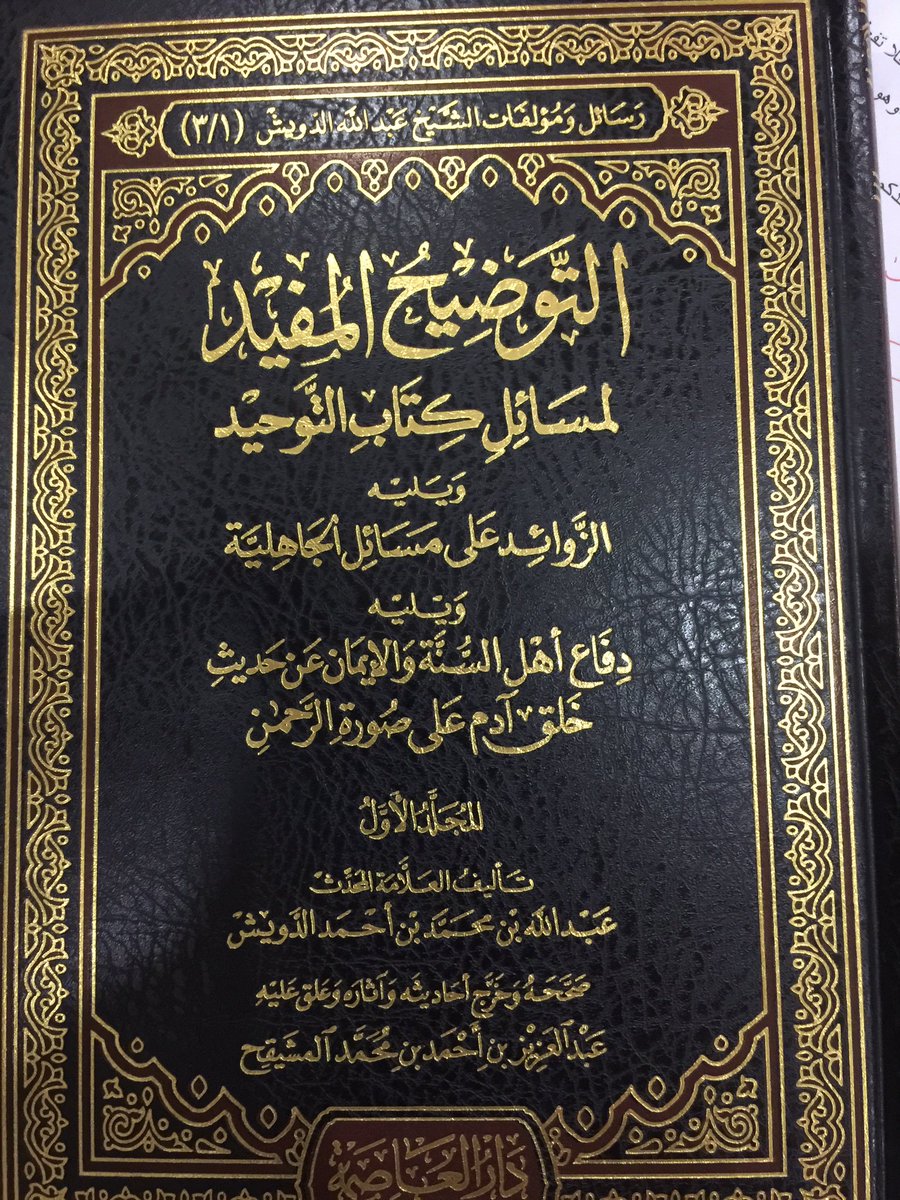 رَسَائل وَمُؤلفَات الشَّيْخ عَبْد الله الدّويش (٣/١)
التَّوَضِيْحُ المُفِيْد
لمسَائِلِ كِتَابِ التَّوحِيد
وَيَليْه
الزَّوائِد عَلى مَسَائِل الجَاهِليَّة
وَيَليْه
دِفَاع أهْل السُّنَّة وَالإيمَان عَن حَديثِ
خَلق آدم عَلى صُورَة الرَّحمٰنِ
المُجَلَّدُ الأوَّلُ
تَأليفُ العَلَّامَة المُحَدِّث
عَبْد الله بن محمَّد بن أحْمَد الدَّويش
صَحَّحَهُ وَخَرَّج أحَاديثَه وَآثارَه وَعَلَّق عَليْه
عَبْد العَزيْز بن أَحْمَد بن مُحَمَّد المشَيقِح
دَارُ العَاصِمَة
وهو